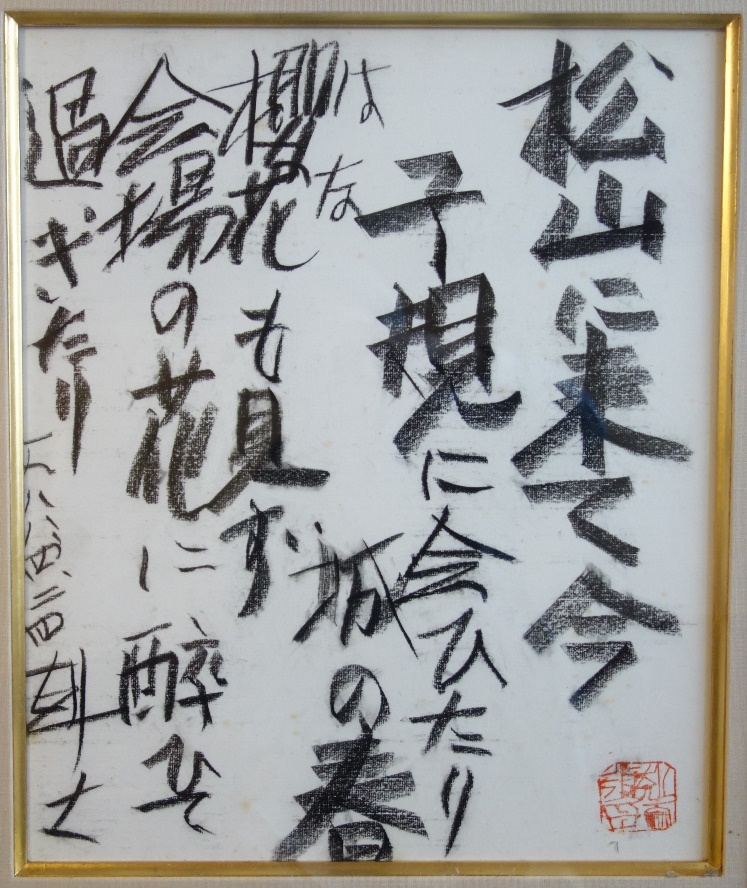 松山に来て今
子規に会ひたり
城の春
はな
櫻花も見ず
会場の花に酔ひて
過ぎたり